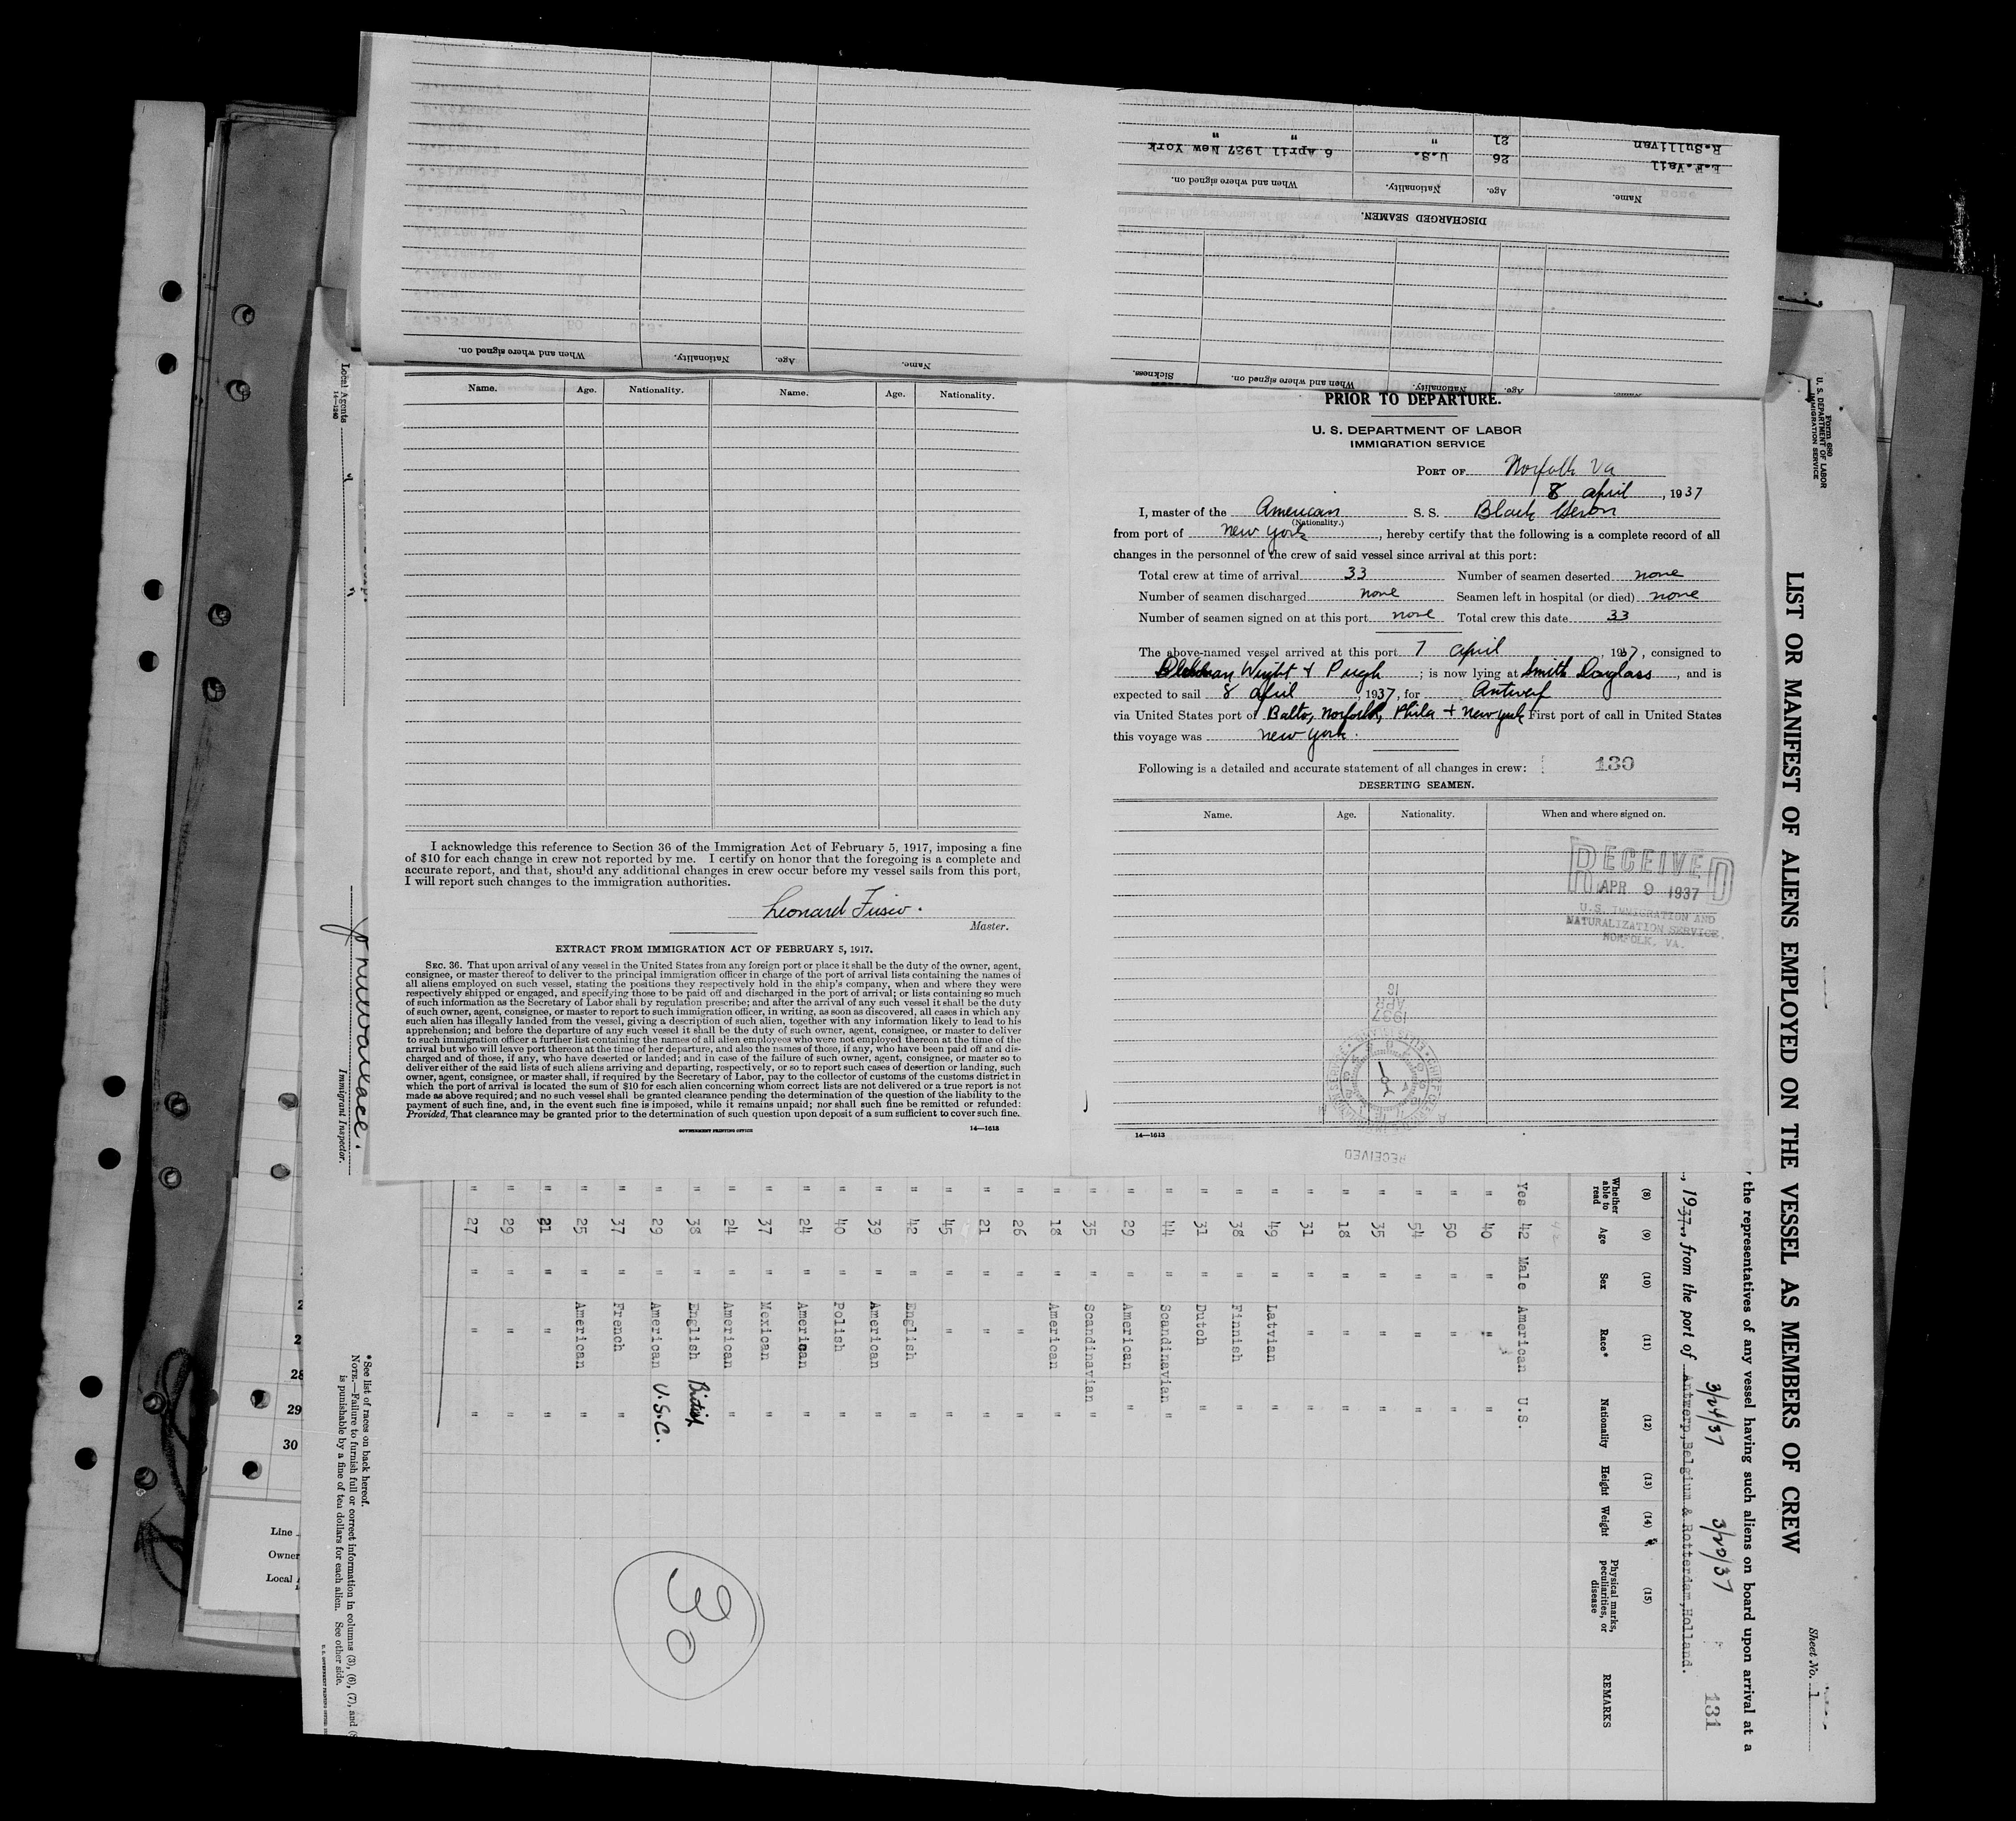 Name. Age. Nationality. When and where signed on.
E.F.Vail 26 U.S. 6 April 1937 New York
R.Sullivan 21 " " "
DISCHARGED SEAMEN.
Name. Age. Nationality. When and where signed on.
Age. Nationality. When and where signed on. Sickness.
Name. Age. Nationality. Name. Age. Nationality.
I acknowledge this reference to Section 36 of the Immigration Act of February 5, 1917, imposing a fine
of $10 for each change in crew not reported by me. I certify on honor that the foregoing is a complete and
accurate report, and that, should any additional changes in crew occur before my vessel sails from this port,
I will report such changes to the immigration authorities.
Leonard Fusco.
Master.
EXTRACT FROM IMMIGRATION ACT OF FEBRUARY 5, 1917.
SEC. 36. That upon arrival of any vessel in the United States from any foreign port or place it shall be the duty of the owner, agent,
consignee, or master thereof to deliver to the principal immigration officer in charge of the port of arrival lists containing the names of
all aliens employed on such vessel, stating the positions they respectively hold in the ship's company, when and where they were
respectively shipped or engaged, and specifying those to be paid off and discharged in the port of arrival; or lists containing so much
of such information as the Secretary of Labor shall by regulation prescribe; and after the arrival of any such vessel it shall be the duty
of such owner, agent, consignee, or master to report to such immigration officer, in writing, as soon as discovered, all cases in which any
such alien has illegally landed from the vessel, giving a description of such alien, together with any information likely to lead to his
apprehension; and before the departure of any such vessel it shall be the duty of such owner, agent, consignee, or master to deliver
to such immigration officer a further list containing the names of all alien employees who were not employed thereon at the time of the
arrival but who will leave port thereon at the time of her departure, and also the names of those, if any, who have been paid off and dis-
charged and of those, if any, who have deserted or landed; and in case of the failure of such owner, agent, consignee, or master so to
deliver either of the said lists of such aliens arriving and departing, respectively, or so to report such cases of desertion or landing, such
owner, agent, consignee, or master shall, if required by the Secretary of Labor, pay to the collector of customs of the customs district in
which the port of arrival is located the sum of $10 for each alien concerning whom correct lists are not delivered or a true report is not
made as above required; and no such vessel shall be granted clearance pending the determination of the question of the liability to the
payment of such fine, and, in the event such fine is imposed, while it remains unpaid; nor shall such fine be remitted or refunded:
Provided, That clearance may be granted prior to the determination of such question upon deposit of a sum sufficient to cover such fine.
GOVERNMENT PRINTING OFFICE 14—1613
PRIOR TO DEPARTURE.
U. S. DEPARTMENT OF LABOR
IMMIGRATION SERVICE
PORT OF Norfolk Va
8 april, 1937
I, master of the American S. S. Black Heron
(Nationality.)
from port of new york, hereby certify that the following is a complete record of all
changes in the personnel of the crew of said vessel since arrival at this port:
Total crew at time of arrival 33 Number of seamen deserted none
Number of seamen discharged none Seamen left in hospital (or died) none
Number of seamen signed on at this port none Total crew this date 33
The above-named vessel arrived at this port 7 april, 1937, consigned to
Wright & Pugh; is now lying at Smith Douglass, and is
expected to sail 8 april 1937, for Antwerp
via United States port of Balto, Norfolk, Phila + new york First port of call in United States
this voyage was new york.
Following is a detailed and accurate statement of all changes in crew: 130
DESERTING SEAMEN.
Name. Age. Nationality. When and where signed on.
RECEIVED
APR 9 1937
U.S. IMMIGRATION AND
NATURALIZATION SERVICE.
NORFOLK, VA.
1937
APR
16
RECEIVED
14—1613
Form 680
U. S. DEPARTMENT OF LABOR
IMMIGRATION SERVICE
Sheet No. 1
LIST OR MANIFEST OF ALIENS EMPLOYED ON THE VESSEL AS MEMBERS OF CREW
the representatives of any vessel having such aliens on board upon arrival at a
3/24/37 3/20/37 131
, 1937, from the port of Antwerp,Belgium & Rotterdam,Holland.
(8) (9) (10) (11) (12) (13) (14) (15)
Whether able to read Age Sex Race* Nationality Height Weight Physical marks, peculiarities, or disease REMARKS
Yes 42 Male American U.S.
" 40 " " "
" 50 " " "
" 54 " " "
" 35 " " "
" 18 " " "
" 31 " " "
" 49 " Latvian "
" 38 " Finnish "
" 31 " Dutch "
" 44 " Scandinavian "
" 29 " American "
" 35 " Scandinavian "
" 18 " American "
" 26 " " "
" 21 " " "
" 45 " " "
" 42 " English "
" 39 " American "
" 40 " Polish "
" 24 " American "
" 37 " Mexican "
" 24 " American "
" 38 " English British
" 29 " American U.S.C.
" 37 " French "
" 25 " American "
" 21 " " "
" 29 " " "
" 27 " " "
30
*See list of races on back hereof.
NOTE.—Failure to furnish full or correct information in columns (3), (6), (7), and
is punishable by a fine of ten dollars for each alien. See other side.
Local Agents
14—1240
Immigrant Inspector.
28
29
30
Line
Owner
Local